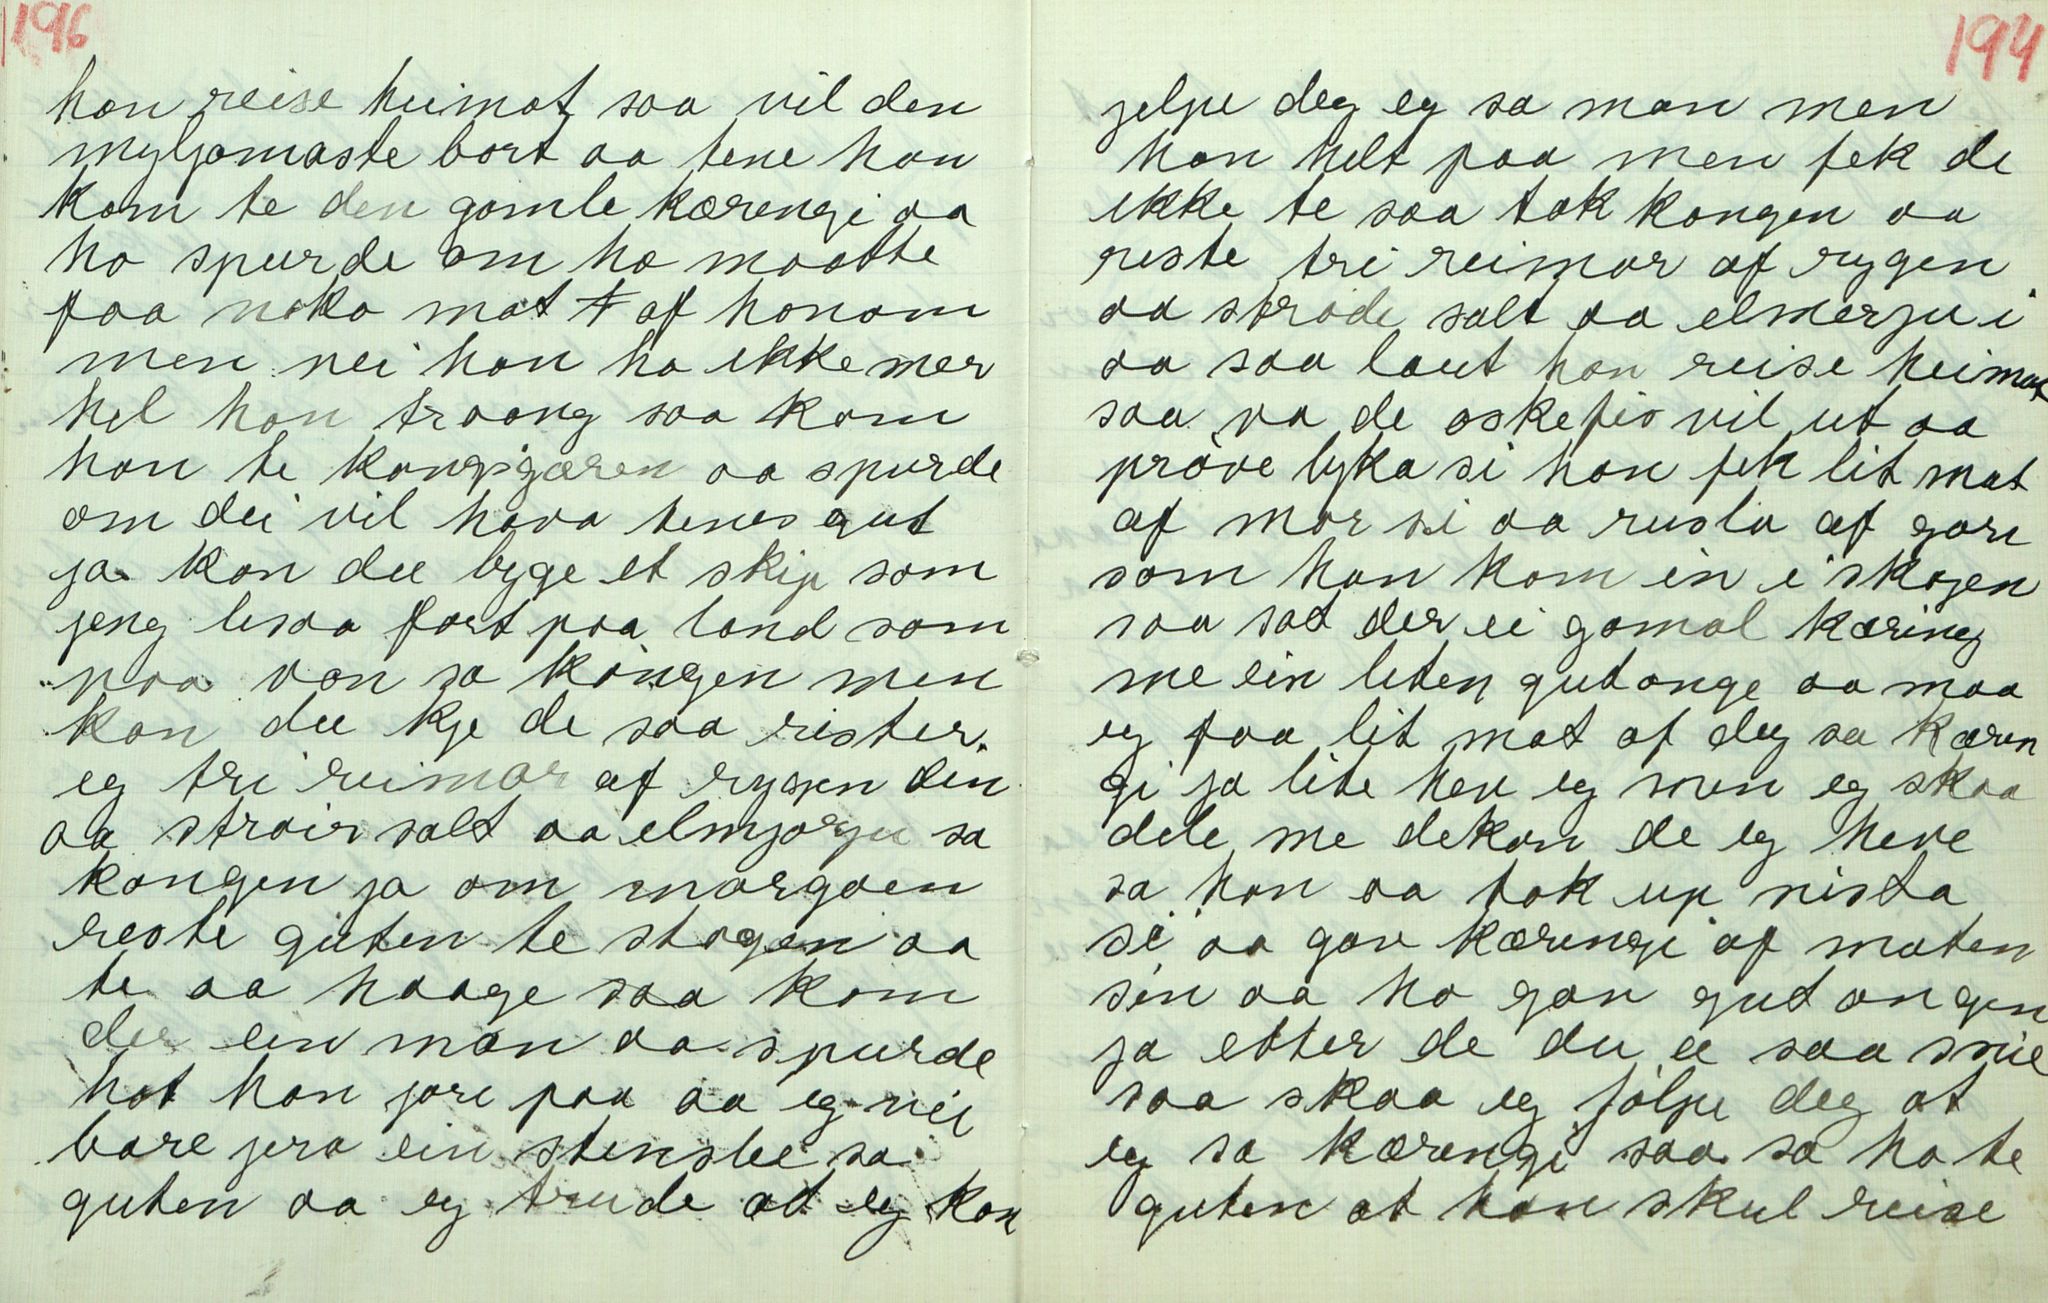 196
han reise heimat saa vil den
myljomaste bort aa tene han
kom te den gamle kærengi aa
ho spurde om ho maatte
faa noko mat af honom
men nei han ha ikke mer
hel han traang saa kom
han te kongsgæren aa spurde
om dei vil hava tenes gut
ja kan du byge et skip som
jeng lisaa fort paa land som
paa van sa kongen men
kan du kje de saa rister
eg tri reimar af rygen din
aa stroir salt aa elmjorju sa
kongen ja om morgoen
reste guten te skogen aa
te aa haage saa kom
der ein man aa spurde
hot han jore paa aa eg vil
bare jera ein stensleé sa
guten aa eg trude at eg kan
194
jelpe deg eg sa man men
han helt paa men fek de
ikke te saa tok kongen aa
reste tri reimar af rygen
aa strode salt aa elmerju i
aa saa laut han reise heimat
saa va de oskefis vil ut aa
pröve lyka si han fek lit mat
af mor si aa rusla af gare
som han kom in i skogen
saa sat der ei gamal kæring
me ein liten gutonge aa maa
eg faa lit mat af deg sa kæren
gi ja lite hev eg men eg skaa
dele me dekan de eg heve
sa han aa tok up nista
si aa gav kærengi af maten
sin aa ho gav gutongen
ja etter de du ee saa snil
saa skaa eg jölpe deg at
eg sa kærengi saa sa ho te
guten at han skul reise